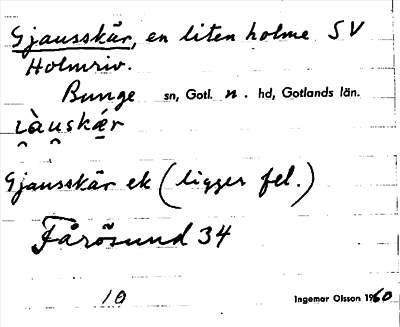 Gjausskär, en liten holme SV
Holmriv.
Bunge sn, Gotl. n. hd, Gotlands län.
i̯àu̯skæ̀r
Gjausskär ek (ligger fel.)
Fårösund 34
10 Ingemar Olsson 1960